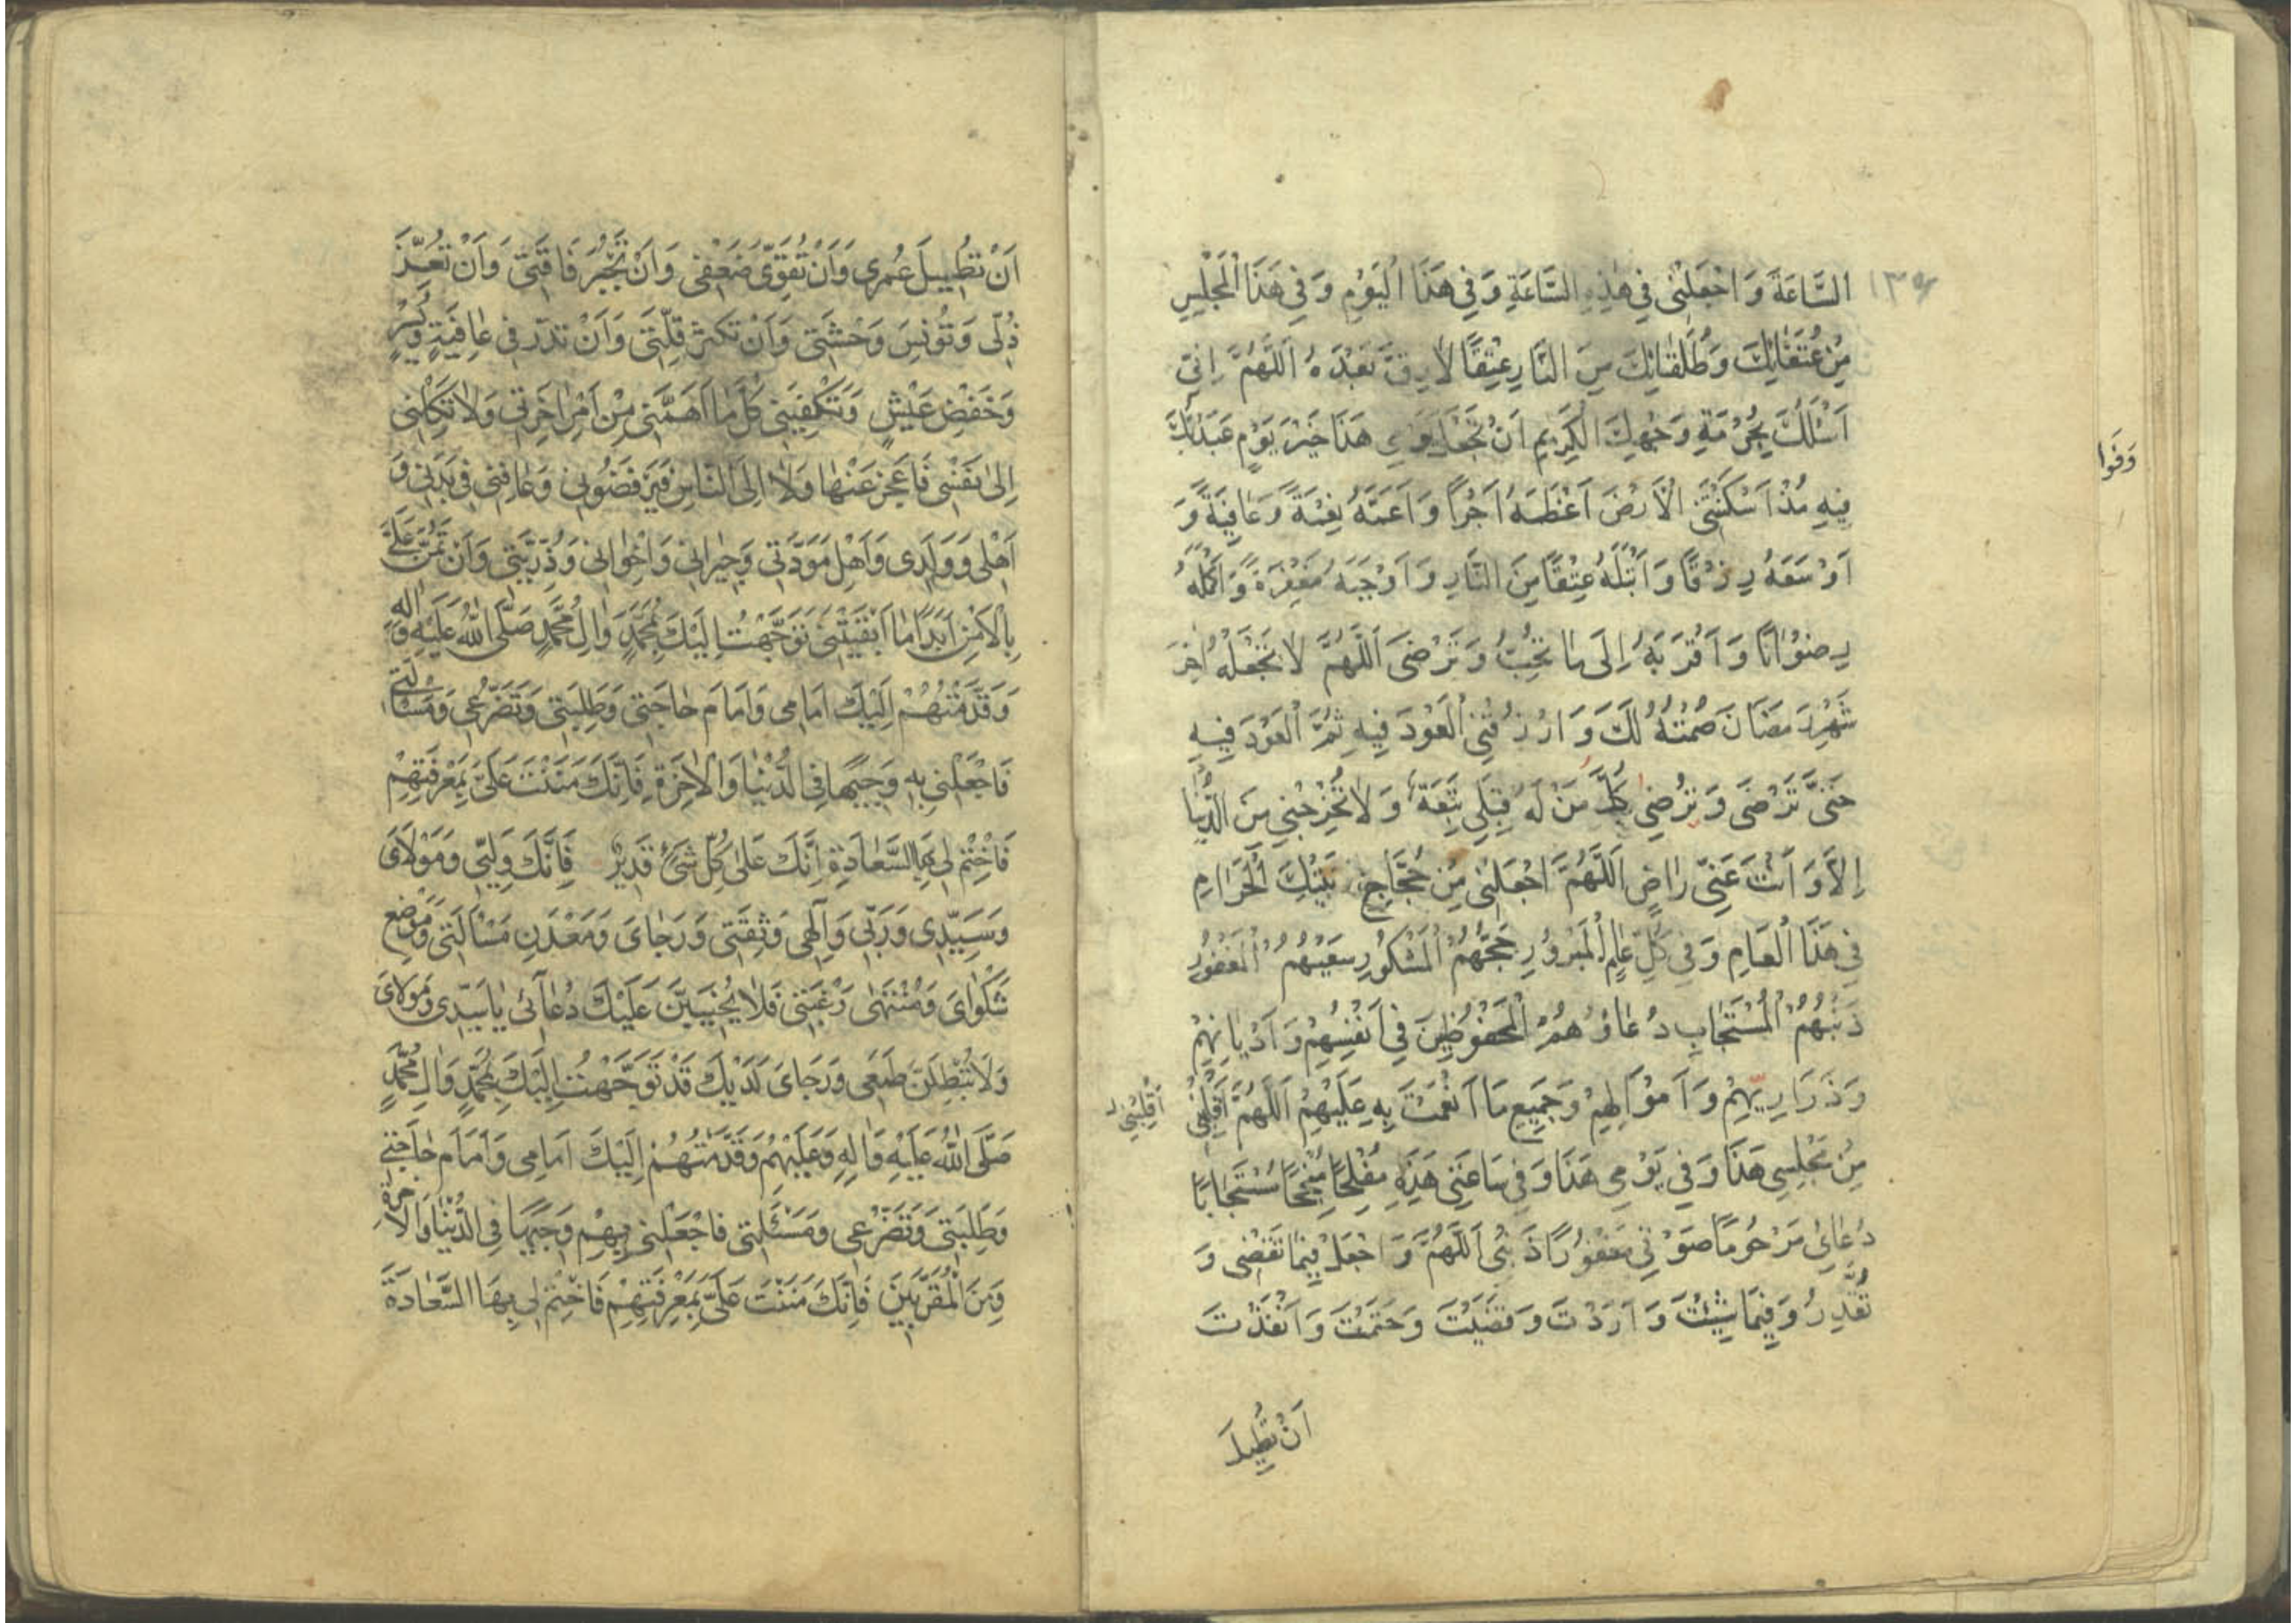 ١٣٥
السَّاعَةَ وَاجْعَلْنِى فِى هٰذِهِ السَّاعَةِ وَفِى هَذَا الْيَوْمِ وَفِى هَذَا الْمَجْلِسِ
مِنْ عُتَقَائِكَ وَطُلَقَائِكَ مِنَ النَّارِ عِتْقًا لَا رِقَّ بَعْدَهُ اَللّٰهُمَّ اِنِّى
اَسْئَلُكَ بِحُرْمَةِ وَجْهِكَ الْكَرِيمِ اَنْ تَجْعَلَ يَوْمِى هَذَا خَيْرَ يَوْمٍ عَبَدْتُكَ
فِيهِ مُذْ اَسْكَنْتَنِى الْاَرْضَ اَعْظَمَهُ اَجْرًا وَاَعَمَّهُ نِعْمَةً وَعَافِيَةً وَ
اَوْسَعَهُ رِزْقًا وَاَبْتَلَهُ عِتْقًا مِنَ النَّارِ وَاَوْجَبَهُ مَغْفِرَةً وَاَكْمَلَهُ
رِضْوَانًا وَاَقْرَبَهُ اِلَى مَا تُحِبُّ وَتَرْضَى اَللّٰهُمَّ لَا تَجْعَلْهُ اٰخِرَ
شَهْرِ رَمَضَانَ صُمْتُهُ لَكَ وَارْزُقْنِى الْعَوْدَ فِيهِ ثُمَّ الْعَوْدَ فِيهِ
حَتَّى تَرْضَى وَتُرْضِىَ كُلَّ مَنْ لَهُ قِبَلِى تَبِعَةٌ وَلَا تُخْرِجْنِى مِنَ الدُّنْيَا
اِلَّا وَاَنْتَ عَنِّى رَاضٍ اَللّٰهُمَّ اجْعَلْنِى مِنْ حُجَّاجِ بَيْتِكَ الْحَرَامِ
فِى هَذَا الْعَامِ وَفِى كُلِّ عَامٍ الْمَبْرُورِ حَجُّهُمْ الْمَشْكُورِ سَعْيُهُمْ الْمَغْفُورِ
ذَنْبُهُمْ الْمُسْتَجَابِ دُعَاؤُهُمُ الْمَحْفُوظِينَ فِى اَنْفُسِهِمْ وَاَدْيَانِهِمْ
وَذَرَارِيِّهِمْ وَاَمْوَالِهِمْ وَجَمِيعِ مَا اَنْعَمْتَ بِهِ عَلَيْهِمْ اَللّٰهُمَّ اَقْلِبْنِى
اَقْلِبْنِى
مِنْ مَجْلِسِى هَذَا وَفِى يَوْمِى هَذَا وَفِى سَاعَتِى هَذِهِ مُفْلِحًا مُنْجِحًا مُسْتَجَابًا
دُعَائِى مَرْحُومًا صَوْتِى مَغْفُورًا ذَنْبِى اَللّٰهُمَّ وَاجْعَلْ فِيمَا تَقْضِى وَ
تُقَدِّرُ وَفِيمَا شِئْتَ وَاَرَدْتَ وَقَضَيْتَ وَحَتَمْتَ وَاَنْفَذْتَ
اَنْ تُطِيلَ
اَنْ تُطِيلَ عُمرِى وَاَنْ تُقَوِّىَ ضَعْفِى وَاَنْ تَجْبُرَ فَاقَتِى وَاَنْ تُعِزَّ
ذُلِّى وَتُونِسَ وَحْشَتِى وَاَنْ تُكْثِرَ قِلَّتِى وَاَنْ تُدِرَّ رِزْقِى فِى عَافِيَةٍ وَيُسْرٍ
وَخَفْضِ عَيْشٍ وَتَكْفِيَنِى كُلَّ مَا اَهَمَّنِى مِنْ اَمْرِ اٰخِرَتِى وَلَا تَكِلْنِى
اِلَى نَفْسِى فَاَعْجِزَ عَنْهَا وَلَا اِلَى النَّاسِ فَيَرْفُضُونِى وَعَافِنِى فِى بَدَنِى وَ
اَهْلِى وَوَلَدِى وَاَهْلِ مَوَدَّتِى وَجِيرَانِى وَاِخْوَانِى وَذُرِّيَّتِى وَاَنْ تَمُنَّ عَلَىَّ
بِالْاَمْنِ اَبَدًا مَا اَبْقَيْتَنِى تَوَجَّهْتُ اِلَيْكَ بِمُحَمَّدٍ وَاٰلِ مُحَمَّدٍ صَلَّى اللّٰهُ عَلَيْهِ وَاٰلِهِ
وَقَدَّمْتُهُمْ اِلَيْكَ اَمَامِى وَاَمَامَ حَاجَتِى وَطَلِبَتِى وَتَضَرُّعِى وَمَسْاَلَتِى
فَاجْعَلْنِى بِهِ وَجِيهًا فِى الدُّنْيَا وَالْاٰخِرَةِ فَاِنَّكَ مَنَنْتَ عَلَىَّ بِمَعْرِفَتِهِمْ
فَاخْتِمْ لِى بِهَا السَّعَادَةِ اِنَّكَ عَلَى كُلِّ شَىْءٍ قَدِيرٌ فَاِنَّكَ وَلِيِّى وَمَوْلَاىَ
وَسَيِّدِى وَرَبِّى وَاِلٰهِى وَثِقَتِى وَرَجَاىَ وَمَعْدَنِ مَسْاَلَتِى وَمَوْضِعِ
شَكْوَاىَ وَمُنْتَهَى رَغْبَتِى فَلَا يُخَيَّبَنَّ عَلَيْكَ دُعَائِى يَا سَيِّدِى وَمَوْلَاىَ
وَلَا تُبْطِلَنَّ طَمَعِى وَرَجَاىَ لَدَيْكَ قَدْ تَوَجَّهْتُ اِلَيْكَ بِمُحَمَّدٍ وَاٰلِ مُحَمَّدٍ
صَلَّى اللّٰهُ عَلَيْهِ وَاٰلِهِ وَعَلَيْهِمْ وَقَدَّمْتُهُمْ اِلَيْكَ اَمَامِى وَاَمَامَ حَاجَتِى
وَطَلِبَتِى وَتَضَرُّعِى وَمَسْئَلَتِى فَاجْعَلْنِى بِهِمْ وَجِيهًا فِى الدُّنْيَا وَالْاٰخِرَةِ
وَمِنَ الْمُقَرَّبِينَ فَاِنَّكَ مَنَنْتَ عَلَىَّ بِمَعْرِفَتِهِمْ فَاخْتِمْ لِى بِهَا السَّعَادَةَ